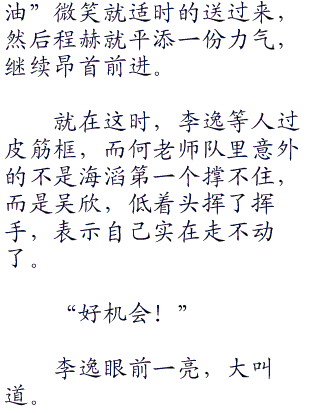 油”微笑就适时的送过来，
然后程赫就平添一份力气，
继续昂首前进。
就在这时，李逸等人过
皮筋框，而何老师队里意外
的不是海滔第一个撑不住，
而是吴欣，低着头挥了挥
手，表示自己实在走不动
了。
“好机会！”
李逸眼前一亮，大叫
道。